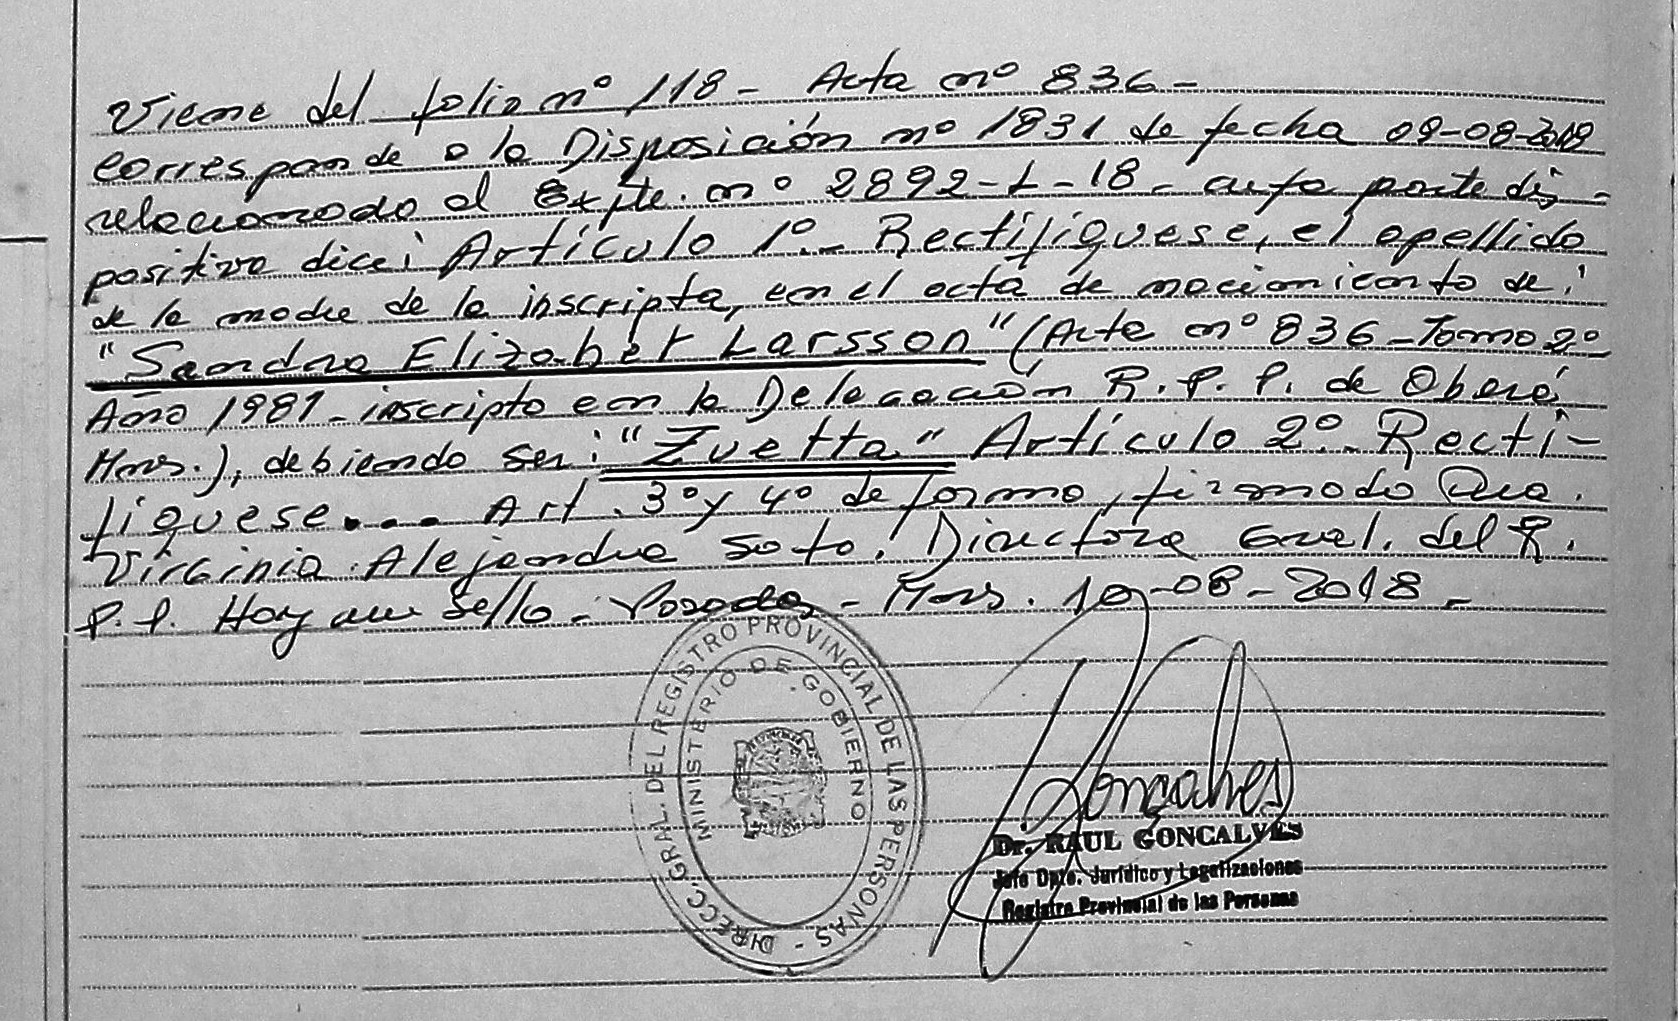 Viene del folio nº 118 - Acta nº 836 -
corresponde a la Disposición nº 1831 de fecha 09-08-2018
relacionado al Expte. nº 2892-L-18 - cuya parte dis-
positiva dice: Artículo 1º.- Rectifíquese, el apellido
de la madre de la inscripta, en el acta de nacimiento de:
"Sandra Elizabet Larsson" (Acta nº 836 - Tomo 2º
Año 1981 - inscripto en la Delegación R. P. P. de Oberá
Mnes.), debiendo ser: "Zuetta" Artículo 2º.- Recti-
fíquese... Art. 3º y 4º de forma, firmado Dra.
Virginia Alejandra Soto. Directora Gral. del R.
P. P. Hay un sello - Posadas - Mnes. 10-08-2018 -
DIRECC. GRAL. DEL REGISTRO PROVINCIAL DE LAS PERSONAS -
MINISTERIO DE GOBIERNO
Goncalves
Dr. RAUL GONCALVES
Jefe Dpto. Jurídico y Legalizaciones
Registro Provincial de las Personas